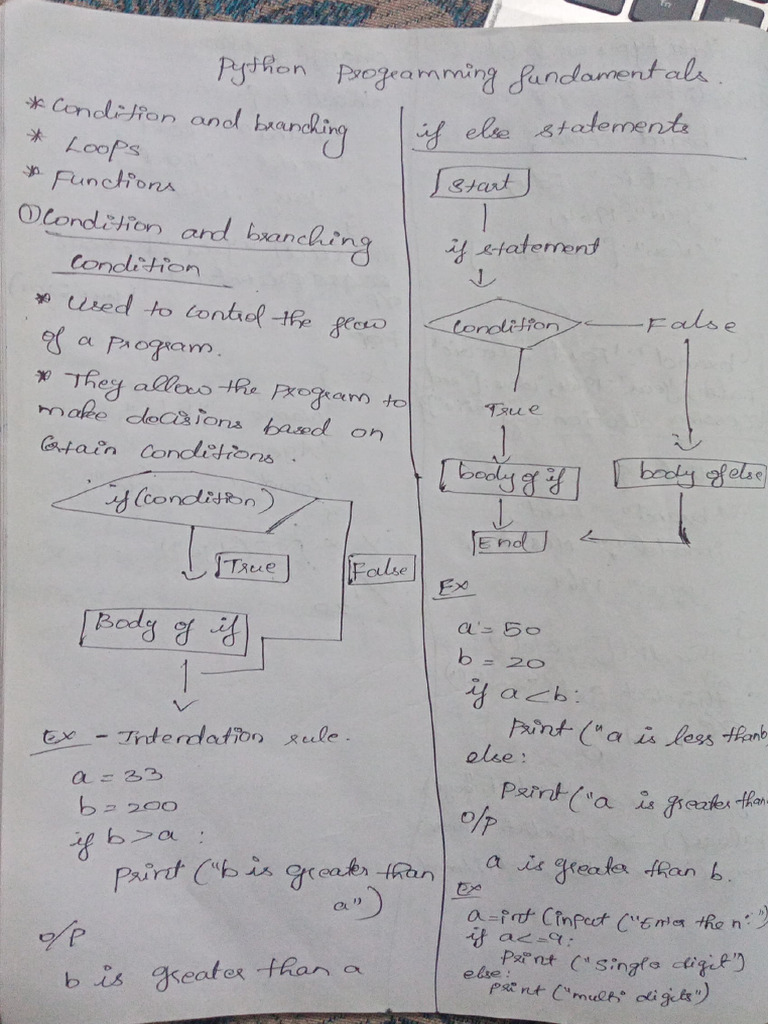 Python Programming fundamentals.
* Condition and branching
* Loops
* Functions
① Condition and branching
condition
* Used to control the flow
of a program.
* They allow the program to
make decisions based on
Certain conditions.
if (condition)
True
False
Body of if
Ex - Intendation rule.
a = 33
b = 200
if b > a :
print ("b is greater than
a")
o/p
b is greater than a
if else statements
Start
if statement
Condition
False
True
body of if
body of else
End
Ex
a = 50
b = 20
if a < b:
Print ("a is less than b
else:
Print ("a is greater than
o/p
a is greater than b.
Ex
a=int (input ("Enter the n:")
if a<=9:
Print ("Single digit")
else:
print ("multi digits")